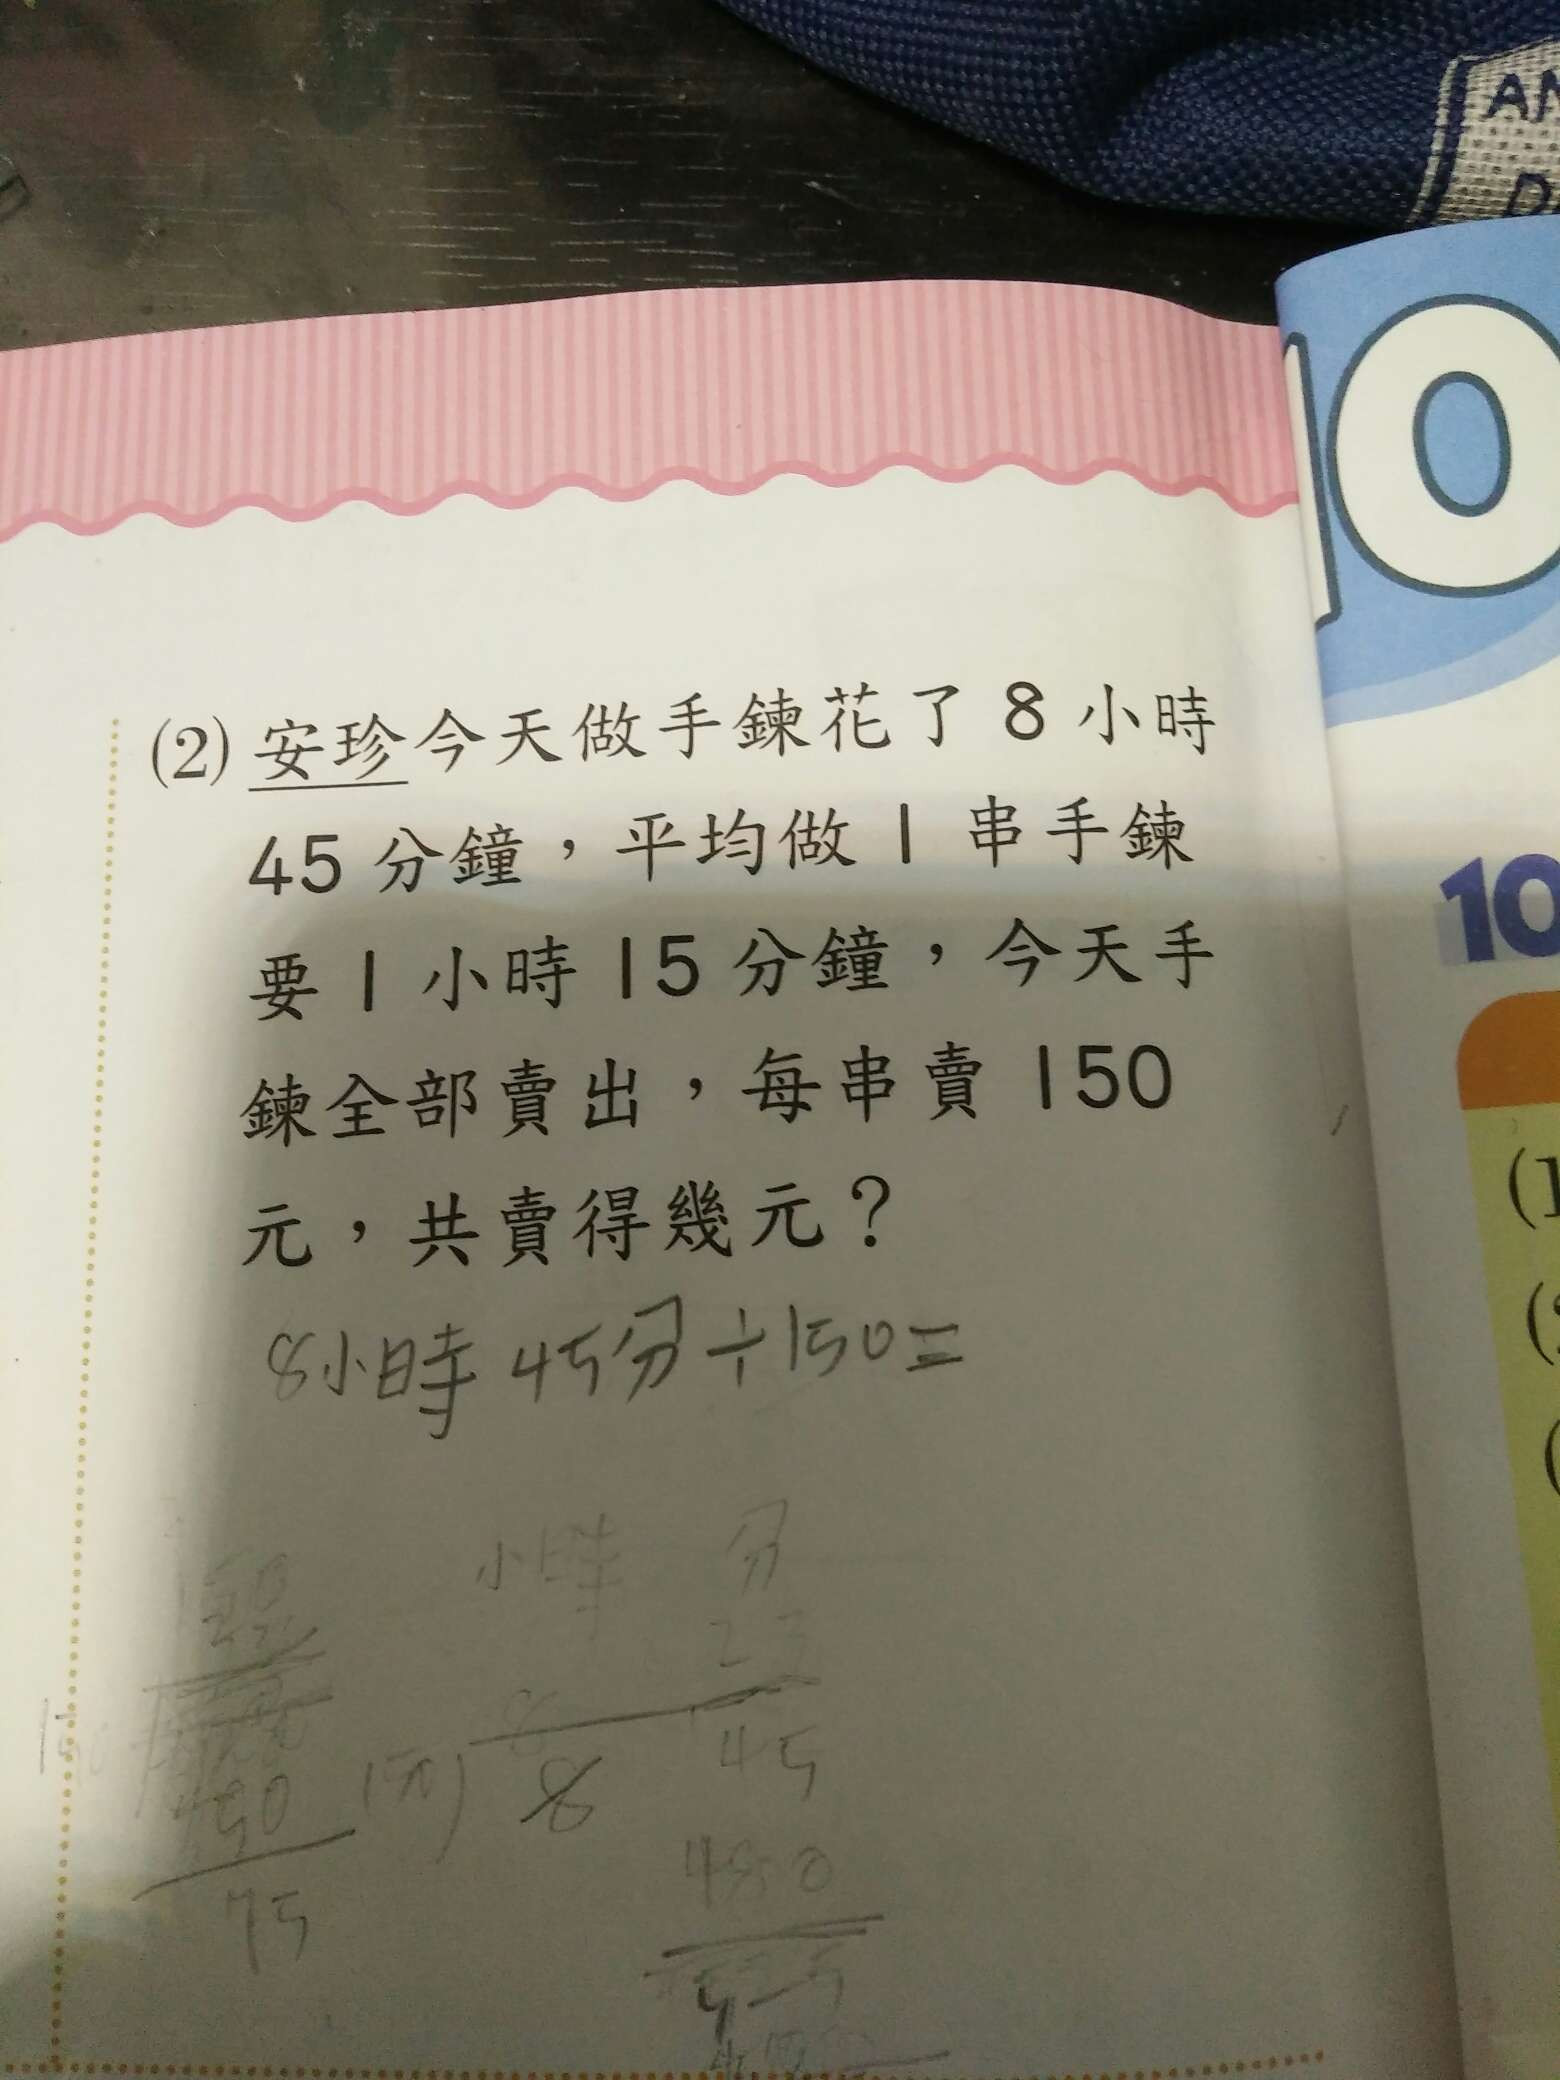 AN
10
(2) 安珍今天做手鍊花了 8 小時
45 分鐘，平均做 1 串手鍊
要 1 小時 15 分鐘，今天手
鍊全部賣出，每串賣 150
元，共賣得幾元？
8小時 45分÷150=
小時 分
8 45
480
75
10
(1